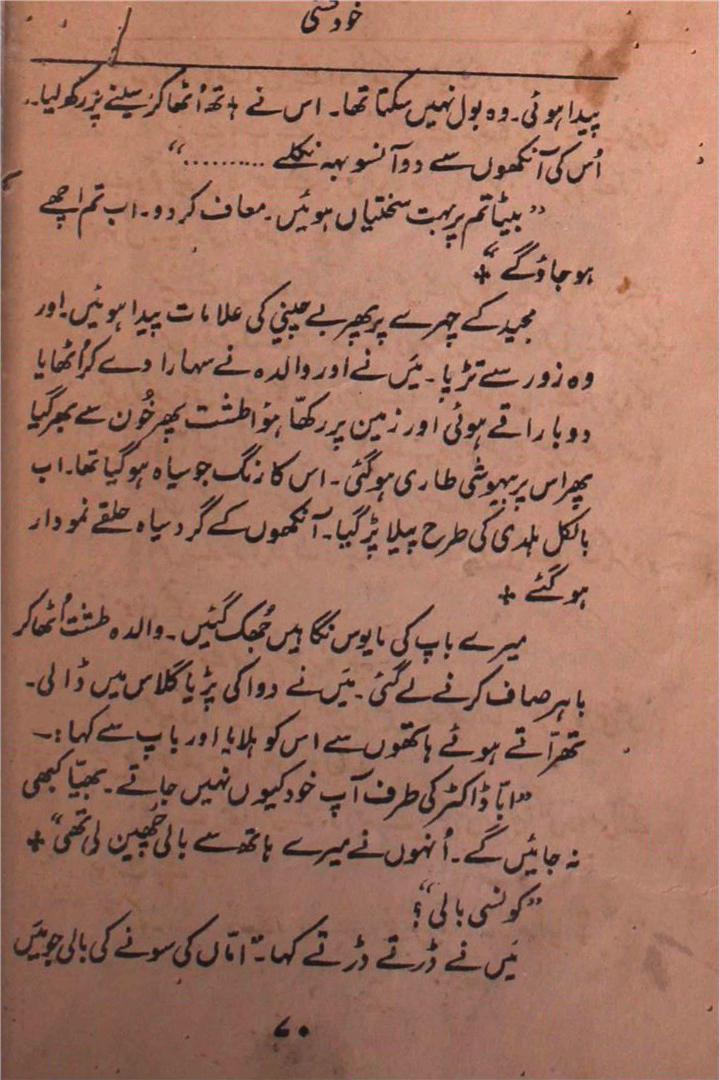 خودکشی
پیدا ہوئی۔ وہ بول نہیں سکتا تھا۔ اس نے ہاتھ اُٹھا کر سینے پر رکھ لیا۔
اُس کی آنکھوں سے دو آنسو بہہ نکلے .........“
”بیٹا تم پر بہت سختیاں ہوئیں۔ معاف کر دو۔ اب تم اچھے
ہو جاؤ گے“ +
مجید کے چہرے پر پھر بے چینی کی علامات پیدا ہوئیں۔ اور
وہ زور سے تڑپا۔ میَں نے اور والدہ نے سہارا دے کر اُٹھایا
دوبارا قے ہوئی اور زمین پر رکھّا ہؤا طشت پھر خُون سے بھر گیا
پھر اس پر بیہوشی طاری ہو گئی۔ اس کا رنگ جو سیاہ ہو گیا تھا۔ اب
بالکل ہلدی کی طرح پیلا پڑ گیا۔ آنکھوں کے گرد سیاہ حلقے نمودار
ہو گئے +
میرے باپ کی مایوس نگاہیں جُھک گئیں۔ والدہ طشت اُٹھا کر
باہر صاف کرنے لے گئی۔ میَں نے دوا کی پڑیا گلاس میں ڈالی۔
تھرّاتے ہوئے ہاتھوں سے اس کو ہلایا اور باپ سے کہا:۔
”ابّا ڈاکٹر کی طرف آپ خود کیوں نہیں جاتے۔ بھیّا کبھی
نہ جائیں گے۔ اُنہوں نے میرے ہاتھ سے بالی چھین لی تھی“ +
”کونسی بالی“؟
میَں نے ڈرتے ڈرتے کہا۔ ”امّاں کی سونے کی بالی جو میَں
۷۰